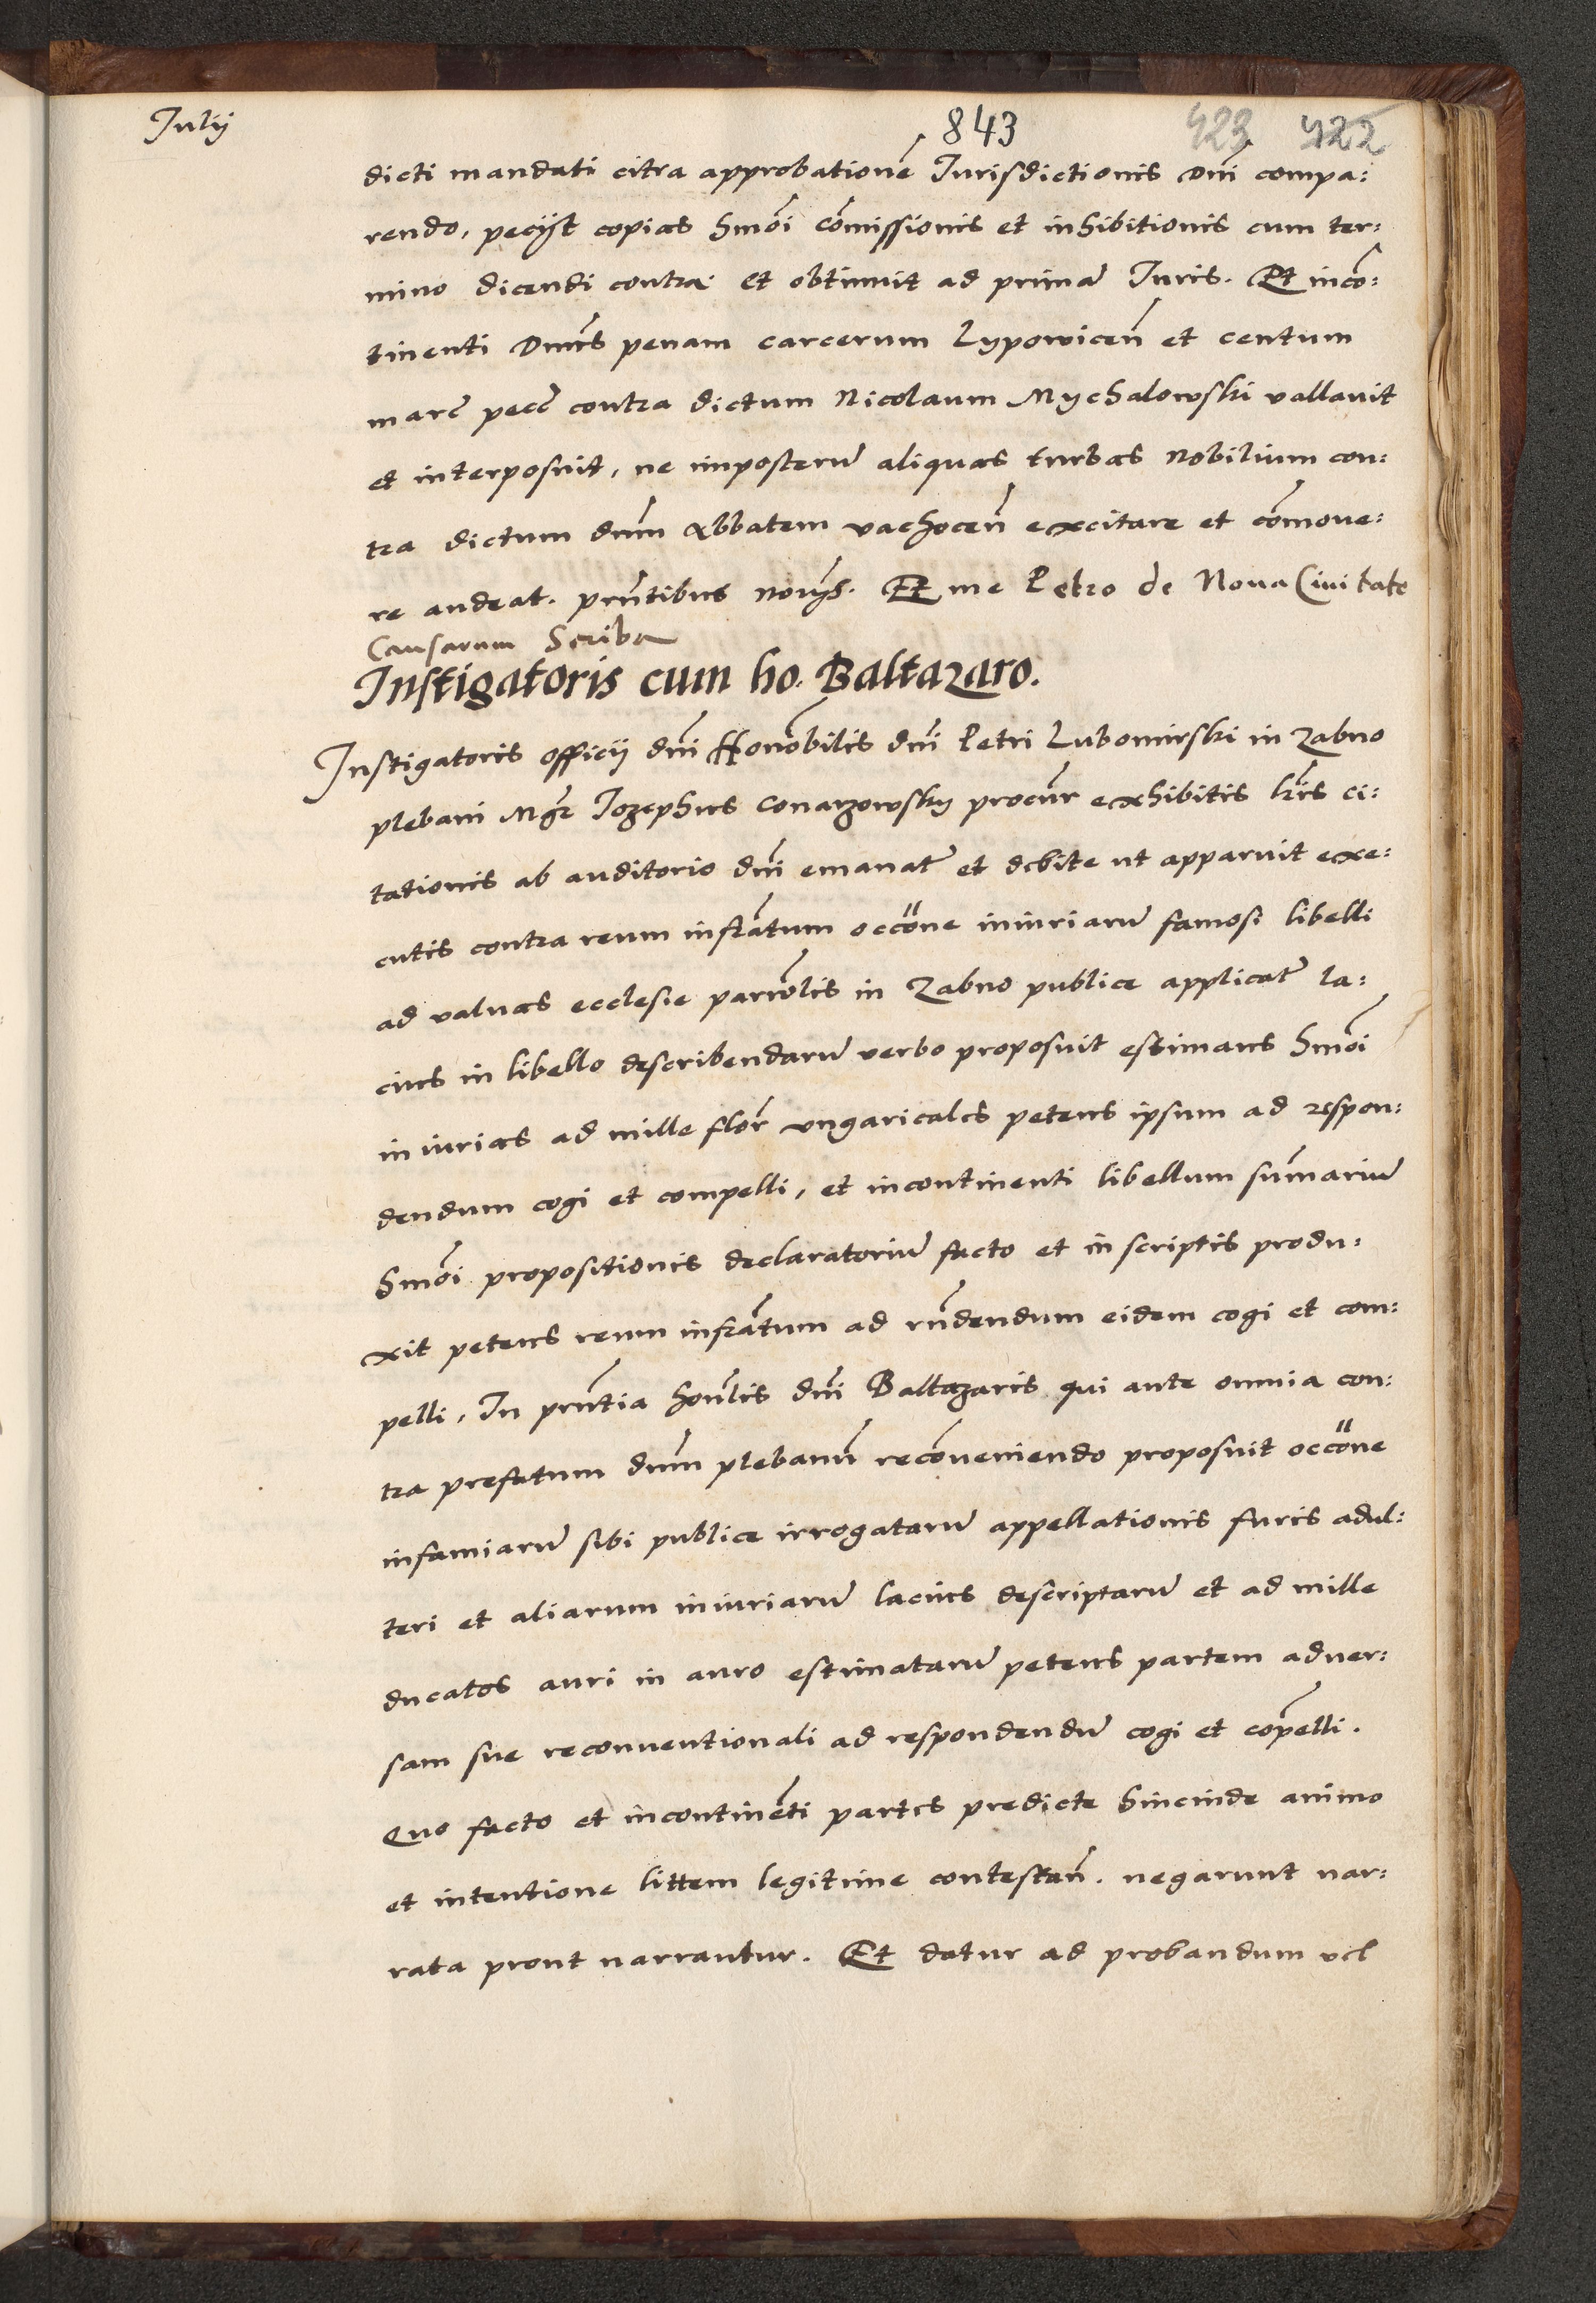 Julij
843 423 422
dicti mandati citra approbationē Jurisdictionis Dnī compa:
rendo, pecijt copias hmōi cōmissionis et inhibitionis cum ter:
mino dicendi contra et obtinuit ad primā Juris. Et incō:
tinenti Dnus penam carcerum Lypowiceń et centum
marc pecc contra dictum Nicolaum Mychalowski vallavit
et interposuit, ne imposterū aliquas turbas nobilium con:
tra dictum dnm̄ Abbatem vachoceń excitare et cōmove:
re audeat. prn̄tibus novijs. Et me Petro de Nova Civitate
Causarum Scriba
Instigatoris cum ho. Baltazaro.
Instigatoris officij dnī Honōbilis dnī Petri Lubomirski in Zabno
plebani Mgr Jozephus Conarzowsky procur̄ exhibitis lr̄is ci:
tationis ab auditorio dnī emanat̄ et debite ut apparuit exe:
cutis contra reum infrātum occōne iniuriarū famosi libelli
ad valvas ecclesie parrōlis in Zabno publice applicat̄ la:
cius in libello describendarū verbo proposuit estimans hmōi
iniurias ad mille flor̄ ungaricales petens ipsum ad respon:
dendum cogi et compelli, et incontinenti libellum sum̄ariū
hmōi propositionis declaratoriū facto et in scriptis produ:
xit petens reum infrātum ad rn̄dendum eidem cogi et com:
pelli, In prn̄tia honl̄is dnī Baltazaris qui ante omnia con:
tra prefatum dnm̄ plebanū recōveniendo proposuit occōne
infamiarū sibi publice irrogatarū appellationis furis adul:
teri et aliarum iniuriarū lacius descriptarū et ad mille
ducatos auri in auro estimatarū petens partem adver:
sam sue reconventionali ad respondendū cogi et cōpelli.
Quo facto et incontinēti partes predicte hincinde animo
et intentione littem legitime contestan̄. negarunt nar:
rata prout narrantur. Et datur ad probandum vel